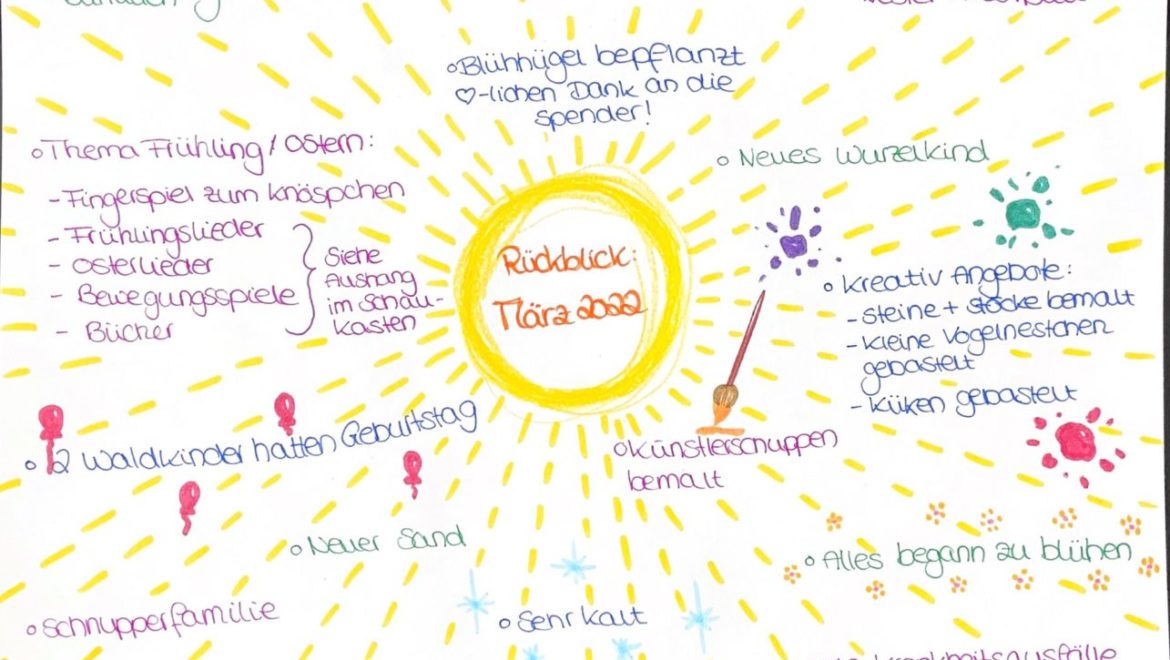 ○ Blühhügel bepflanzt
♡-lichen Dank an die
spender!
○ Thema Frühling / Ostern:
- Fingerspiel zum knöspchen
- Frühlingslieder
- Osterlieder
- Bewegungsspiele
- Bücher
Siehe
Aushang
im Schau-
kasten
○ Neues Wurzelkind
Rückblick:
März 2022
○ Kreativ Angebote:
- Steine + Stöcke bemalt
- Kleine Vogelnestchen
gebastelt
- Küken gebastelt
○ 2 Waldkinder hatten Geburtstag
○ Künstlerschuppen
bemalt
○ Neuer Sand
○ Alles begann zu blühen
○ Schnupperfamilie
○ Sehr kalt